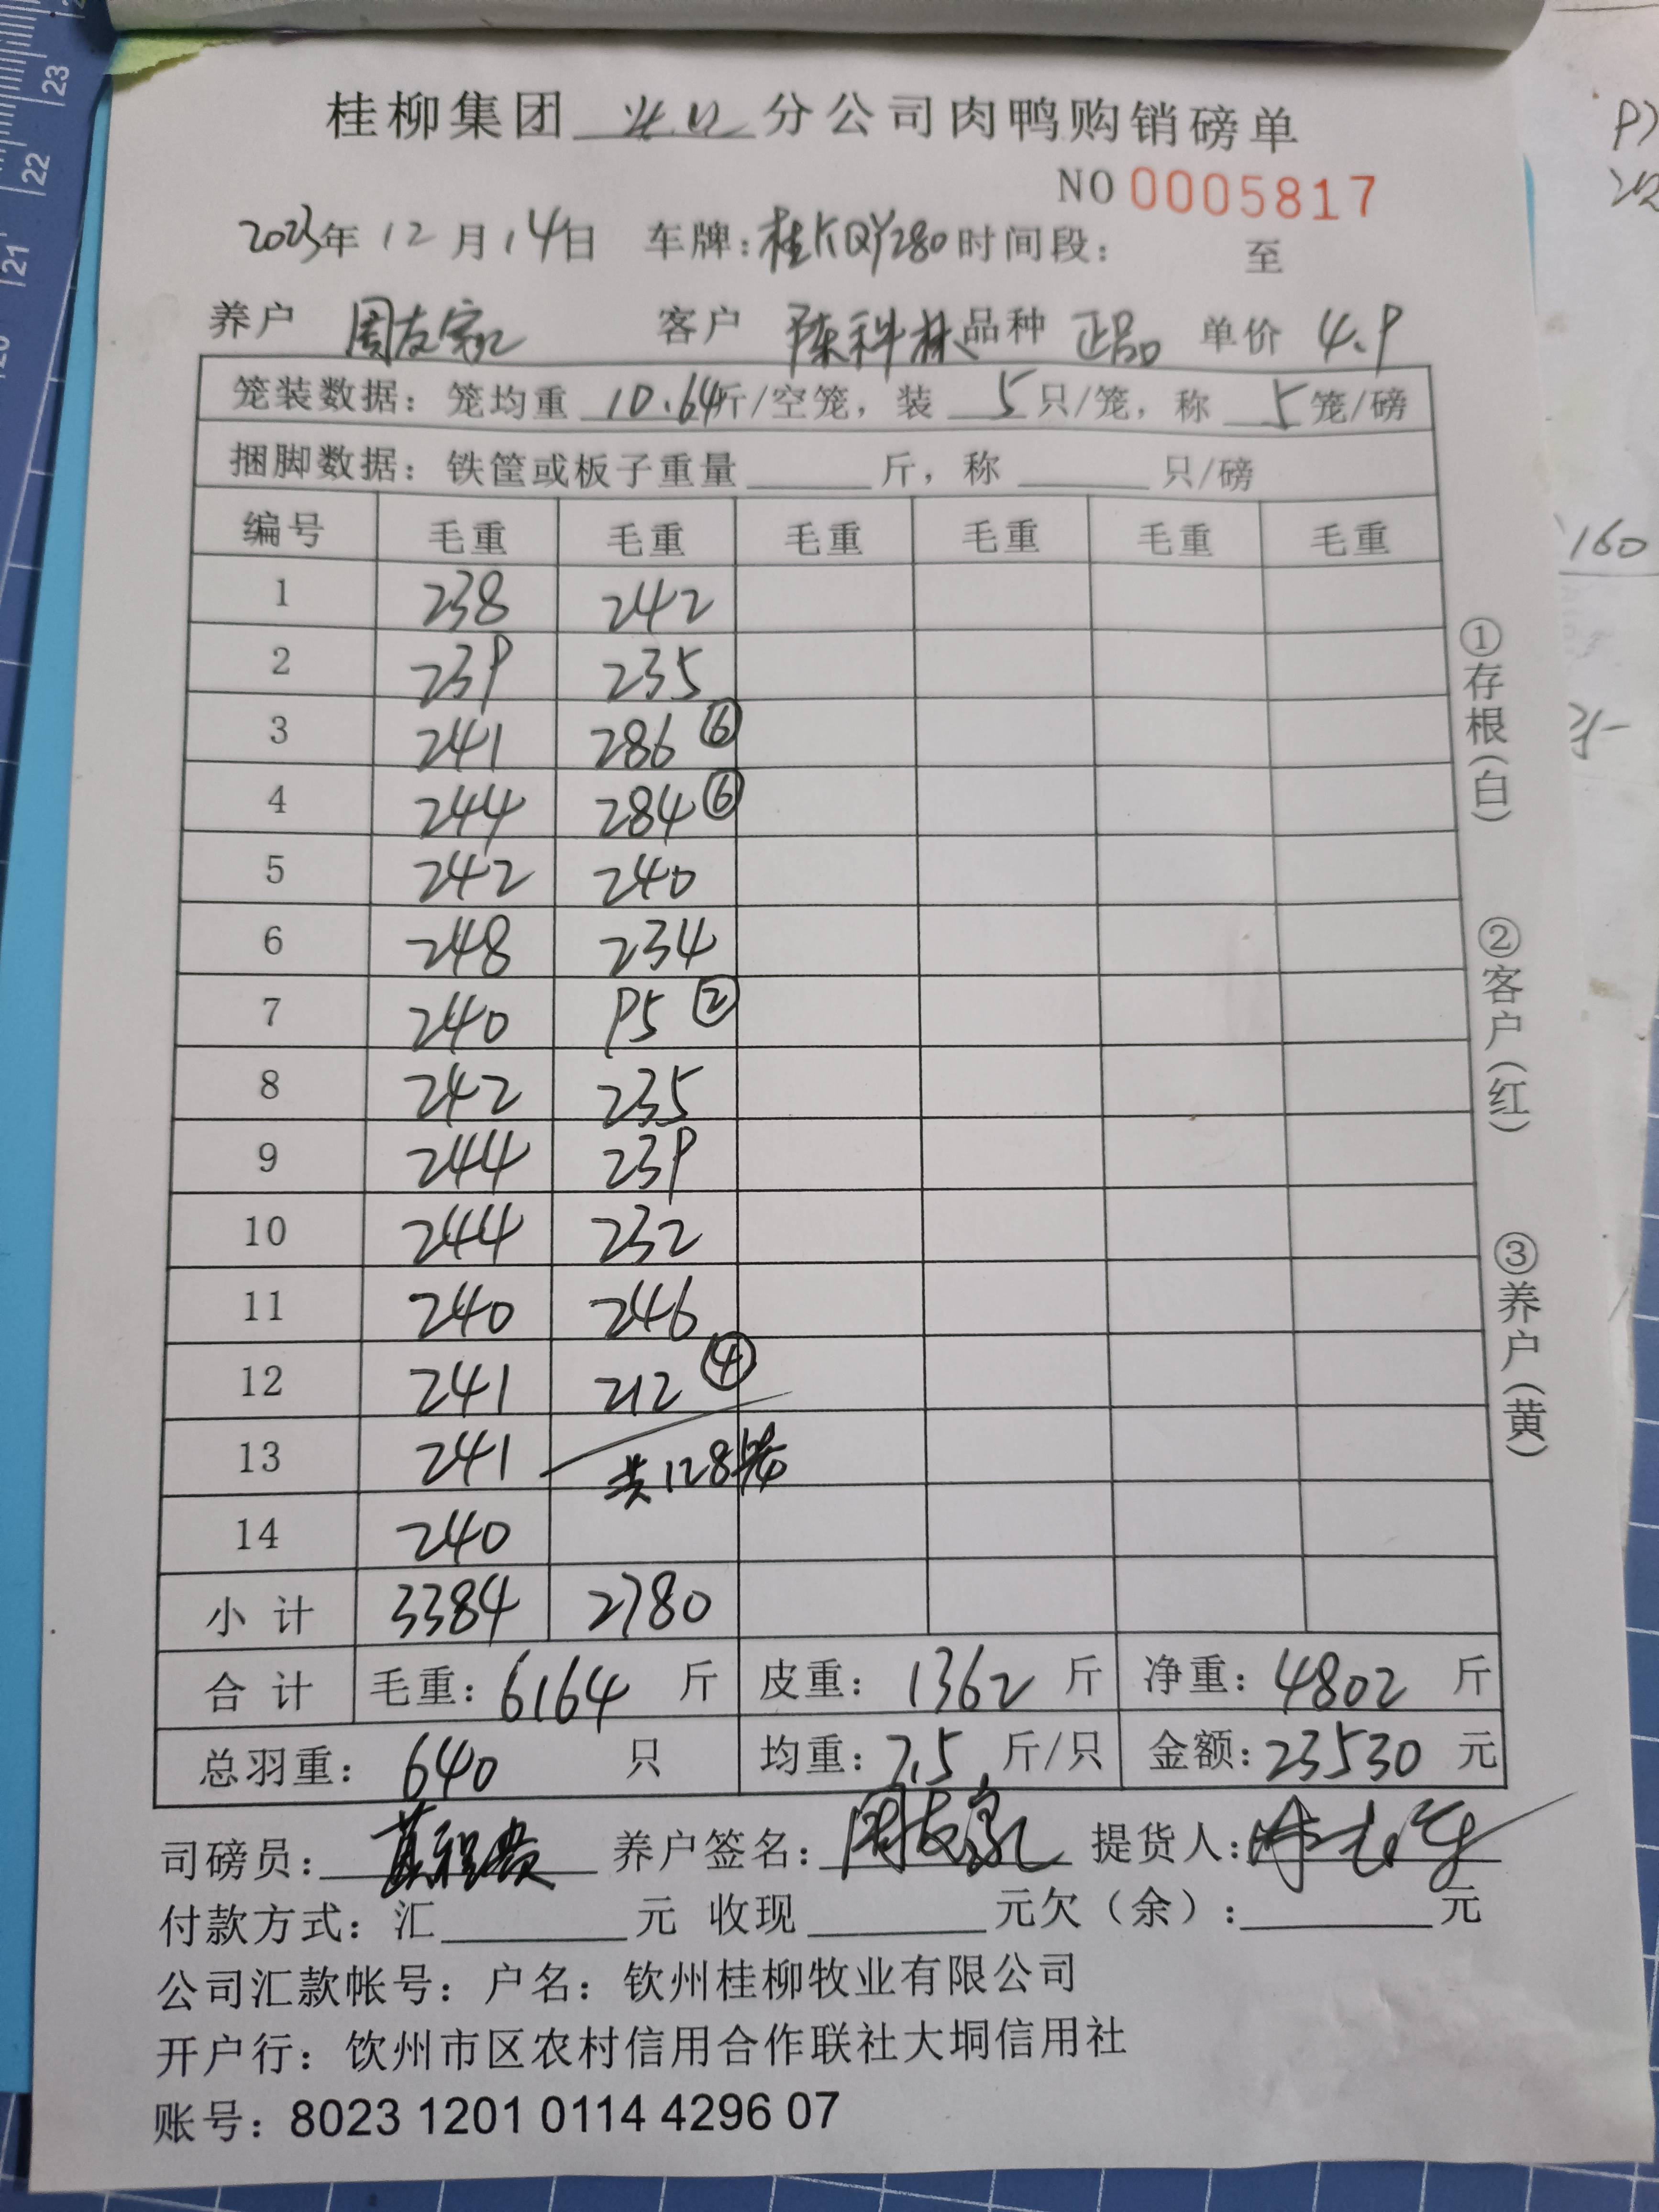 桂柳集团 北口 分公司肉鸭购销磅单
NO 0005817
2023年 12 月 14日 车牌:桂KQY280 时间段: 至
养户 周友家 客户 陈科林 品种 正品 单价 4.9
笼装数据: 笼均重 10.64 斤/空笼, 装 5 只/笼, 称 5 笼/磅
捆脚数据: 铁筐或板子重量 斤, 称 只/磅
编号 毛重 毛重 毛重 毛重 毛重 毛重
1 238 242
2 239 235
3 241 286 ⑥
4 244 284 ⑥
5 242 240
6 248 234
7 240 95 ②
8 242 235
9 244 239
10 244 232
11 240 246
12 241 212 ④
13 241 共128笼
14 240
小 计 3384 2780
合 计 毛重: 6164 斤 皮重: 1362 斤 净重: 4802 斤
总羽重: 640 只 均重: 7.5 斤/只 金额: 23530 元
司磅员: 养户签名: 周友家 提货人:
付款方式: 汇 元 收现 元欠(余): 元
公司汇款帐号: 户名: 钦州桂柳牧业有限公司
开户行: 钦州市区农村信用合作联社大垌信用社
账号: 8023 1201 0114 4296 07
①存根(白)
②客户(红)
③养户(黄)
160
23
22
21
20